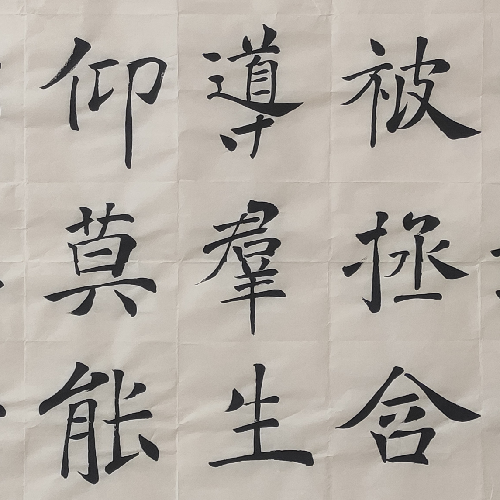 被拯含
導羣生
仰莫能